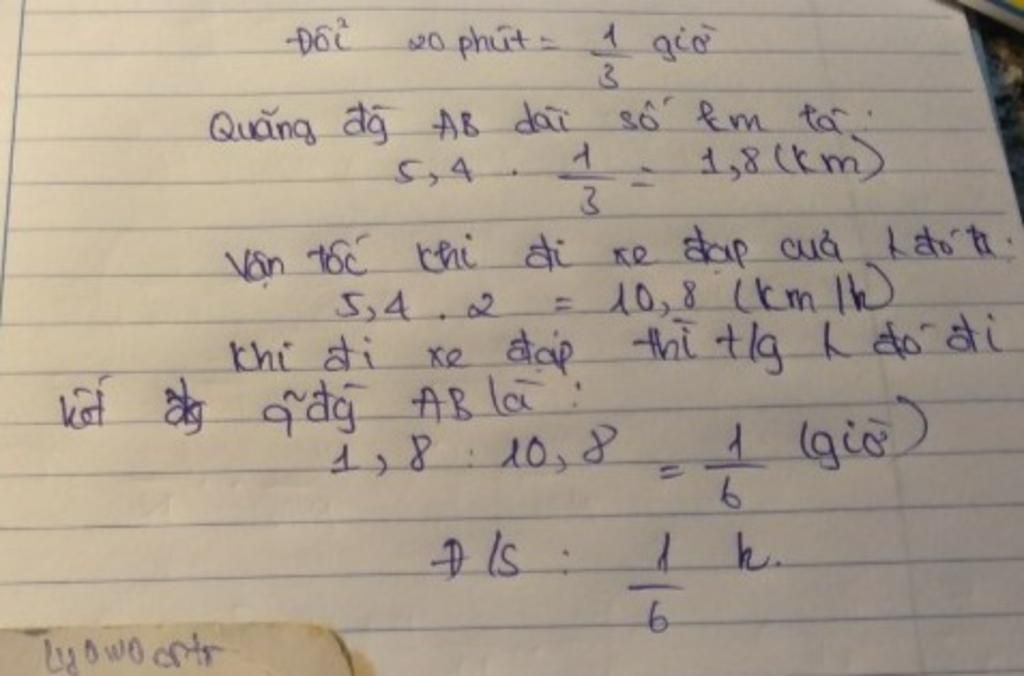 Đổi 20 phút = 1/3 giờ
Quãng đg AB dài số km là:
5,4 . 1/3 = 1,8 (km)
Vận tốc khi đi xe đạp của h đó là:
5,4 . 2 = 10,8 (km/h)
Khi đi xe đạp thì t/g h đó đi
hết qđg AB là:
1,8 : 10,8 = 1/6 (giờ)
Đ/S: 1/6 h.